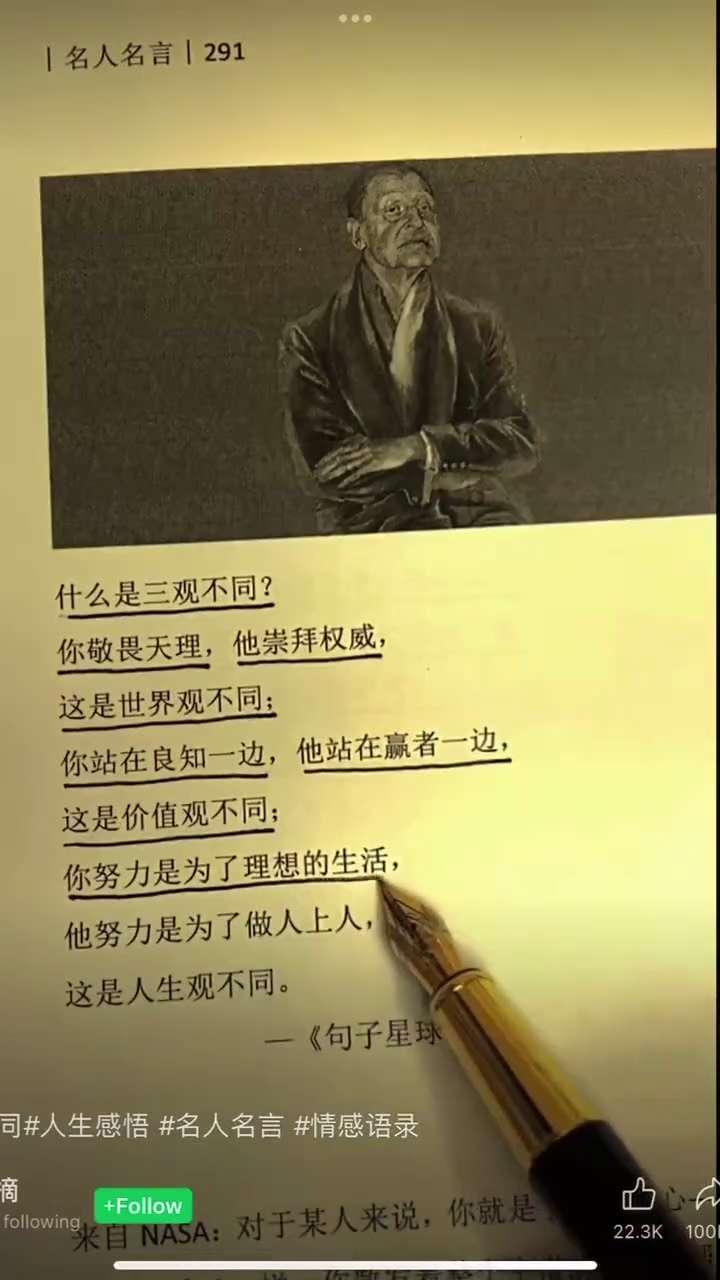 | 名人名言 | 291
什么是三观不同？
你敬畏天理，他崇拜权威，
这是世界观不同；
你站在良知一边，他站在赢者一边，
这是价值观不同；
你努力是为了理想的生活，
他努力是为了做人上人，
这是人生观不同。
—《句子星球
同#人生感悟 #名人名言 #情感语录
摘
+Follow
following
心
22.3K
来自 NASA：对于某人来说，你就是